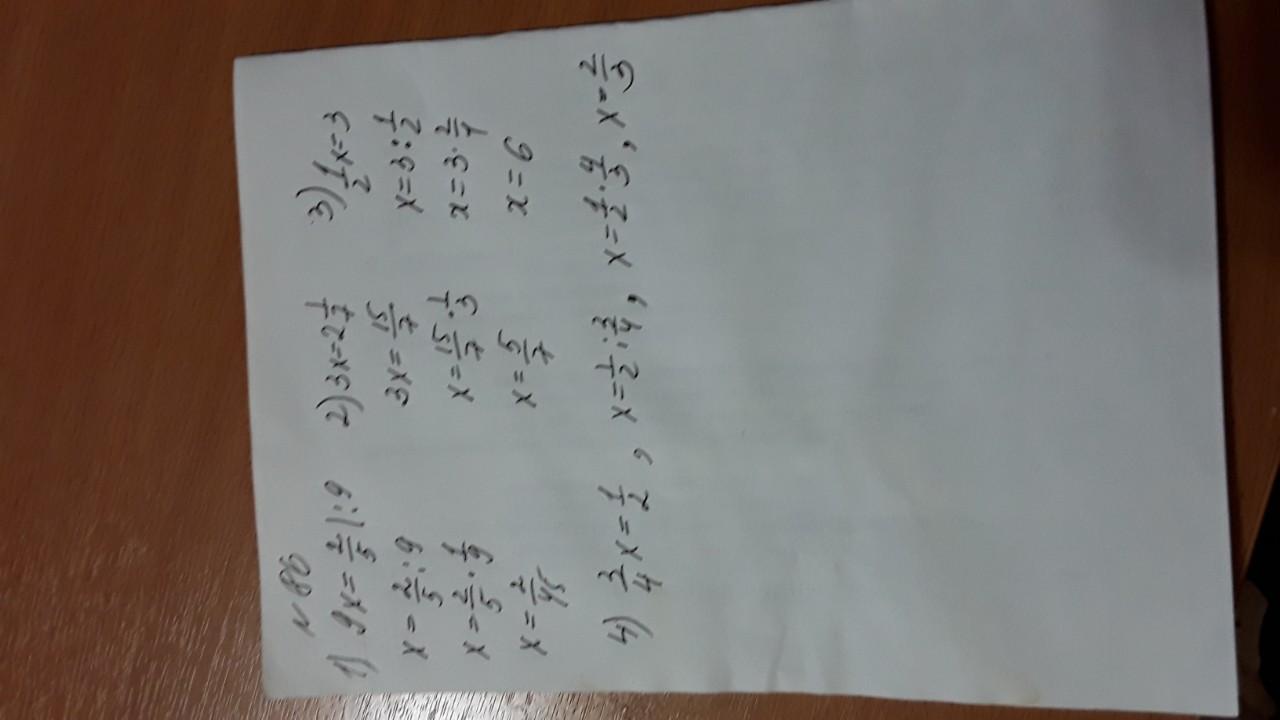 № 86
1) 9x = 2/5 |:9
x = 2/5 : 9
x = 2/5 · 1/9
x = 2/45
2) 3x = 2 1/7
3x = 15/7
x = 15/7 · 1/3
x = 5/7
3) 1/2 x = 3
x = 3 : 1/2
x = 3 · 2/1
x = 6
4) 3/4 x = 1/2 , x = 1/2 : 3/4 , x = 1/2 · 4/3 , x = 2/3